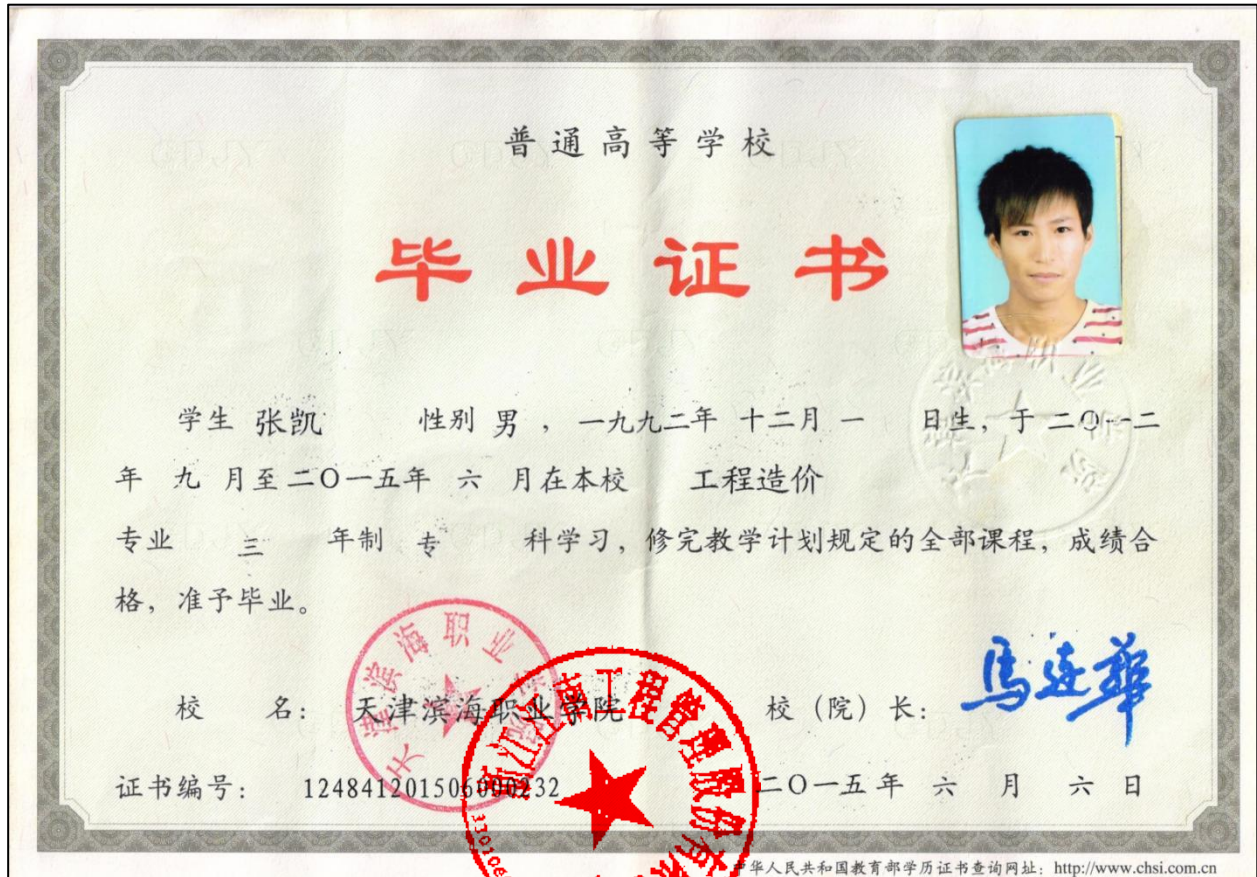 普通高等学校
毕业证书
学生 张凯 性别 男 ，一九九二年 十二月 一 日生，于 二〇一二
年 九 月至 二〇一五年 六 月在本校 工程造价
专业 三 年制 专 科学习，修完教学计划规定的全部课程，成绩合
格，准予毕业。
校 名： 天津滨海职业学院 校（院）长： 马连华
证书编号： 124841201506000232 二〇一五年 六 月 六 日
中华人民共和国教育部学历证书查询网址：http://www.chsi.com.cn
天津滨海职业学院
浙江江南工程管理股份有